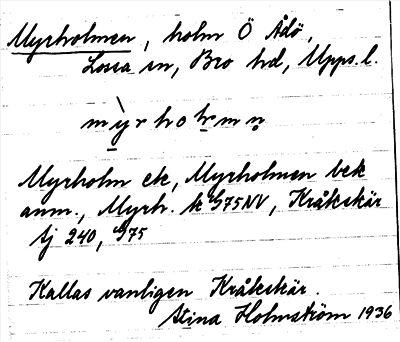 Myrholmen, holm Ö Ådö,
Lossa sn, Bro hd, Upps.l.
mỳrholmn̥
Myrholm ek, Myrholmen bek
anm., Myrh. k G75NV, Kråkskär
tj 240, G75
Kallas vanligen Kråkskär.
Stina Holmström 1936